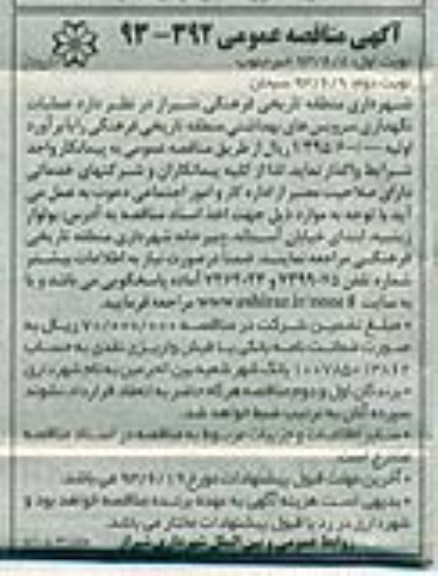 آگهی مناقصه عمومی ۳۹۲ - ۹۳
نوبت اول:
نوبت دوم:
شهرداری منطقه تاریخی فرهنگی شیراز در نظر دارد عملیات
نگهداری سرویس های بهداشتی منطقه تاریخی فرهنگی را با برآورد
اولیه ریال از طریق مناقصه عمومی به پیمانکار واجد
شرایط واگذار نماید لذا از کلیه پیمانکاران و شرکتهای خدماتی
دارای صلاحیت معتبر از اداره کار و امور اجتماعی دعوت به عمل می
آید با توجه به موارد ذیل جهت اخذ اسناد مناقصه به آدرس: بولوار
ابتدای خیابان آستانه شهرداری منطقه تاریخی
فرهنگی مراجعه نمایند. ضمناً در صورت نیاز به اطلاعات بیشتر
شماره تلفن آماده پاسخگویی می باشد و یا
به سایت مراجعه فرمایید.
• مبلغ تضمین شرکت در مناقصه ۷۰/۰۰۰/۰۰۰ ریال به
صورت ضمانت نامه بانکی یا فیش واریزی نقدی به حساب
بانک شهر شعبه بین الحرمین به نام شهرداری
• برندگان اول و دوم مناقصه هرگاه حاضر به انعقاد قرارداد نشوند
سپرده آنان به ترتیب ضبط خواهد شد.
• سایر اطلاعات و جزییات مربوط به مناقصه در اسناد مناقصه
مندرج است.
• آخرین مهلت قبول پیشنهادات مورخ می باشد.
• بدیهی است هزینه آگهی به عهده برنده مناقصه خواهد بود و
شهرداری در رد یا قبول پیشنهادات مختار می باشد.
روابط عمومی و بین الملل شهرداری شیراز